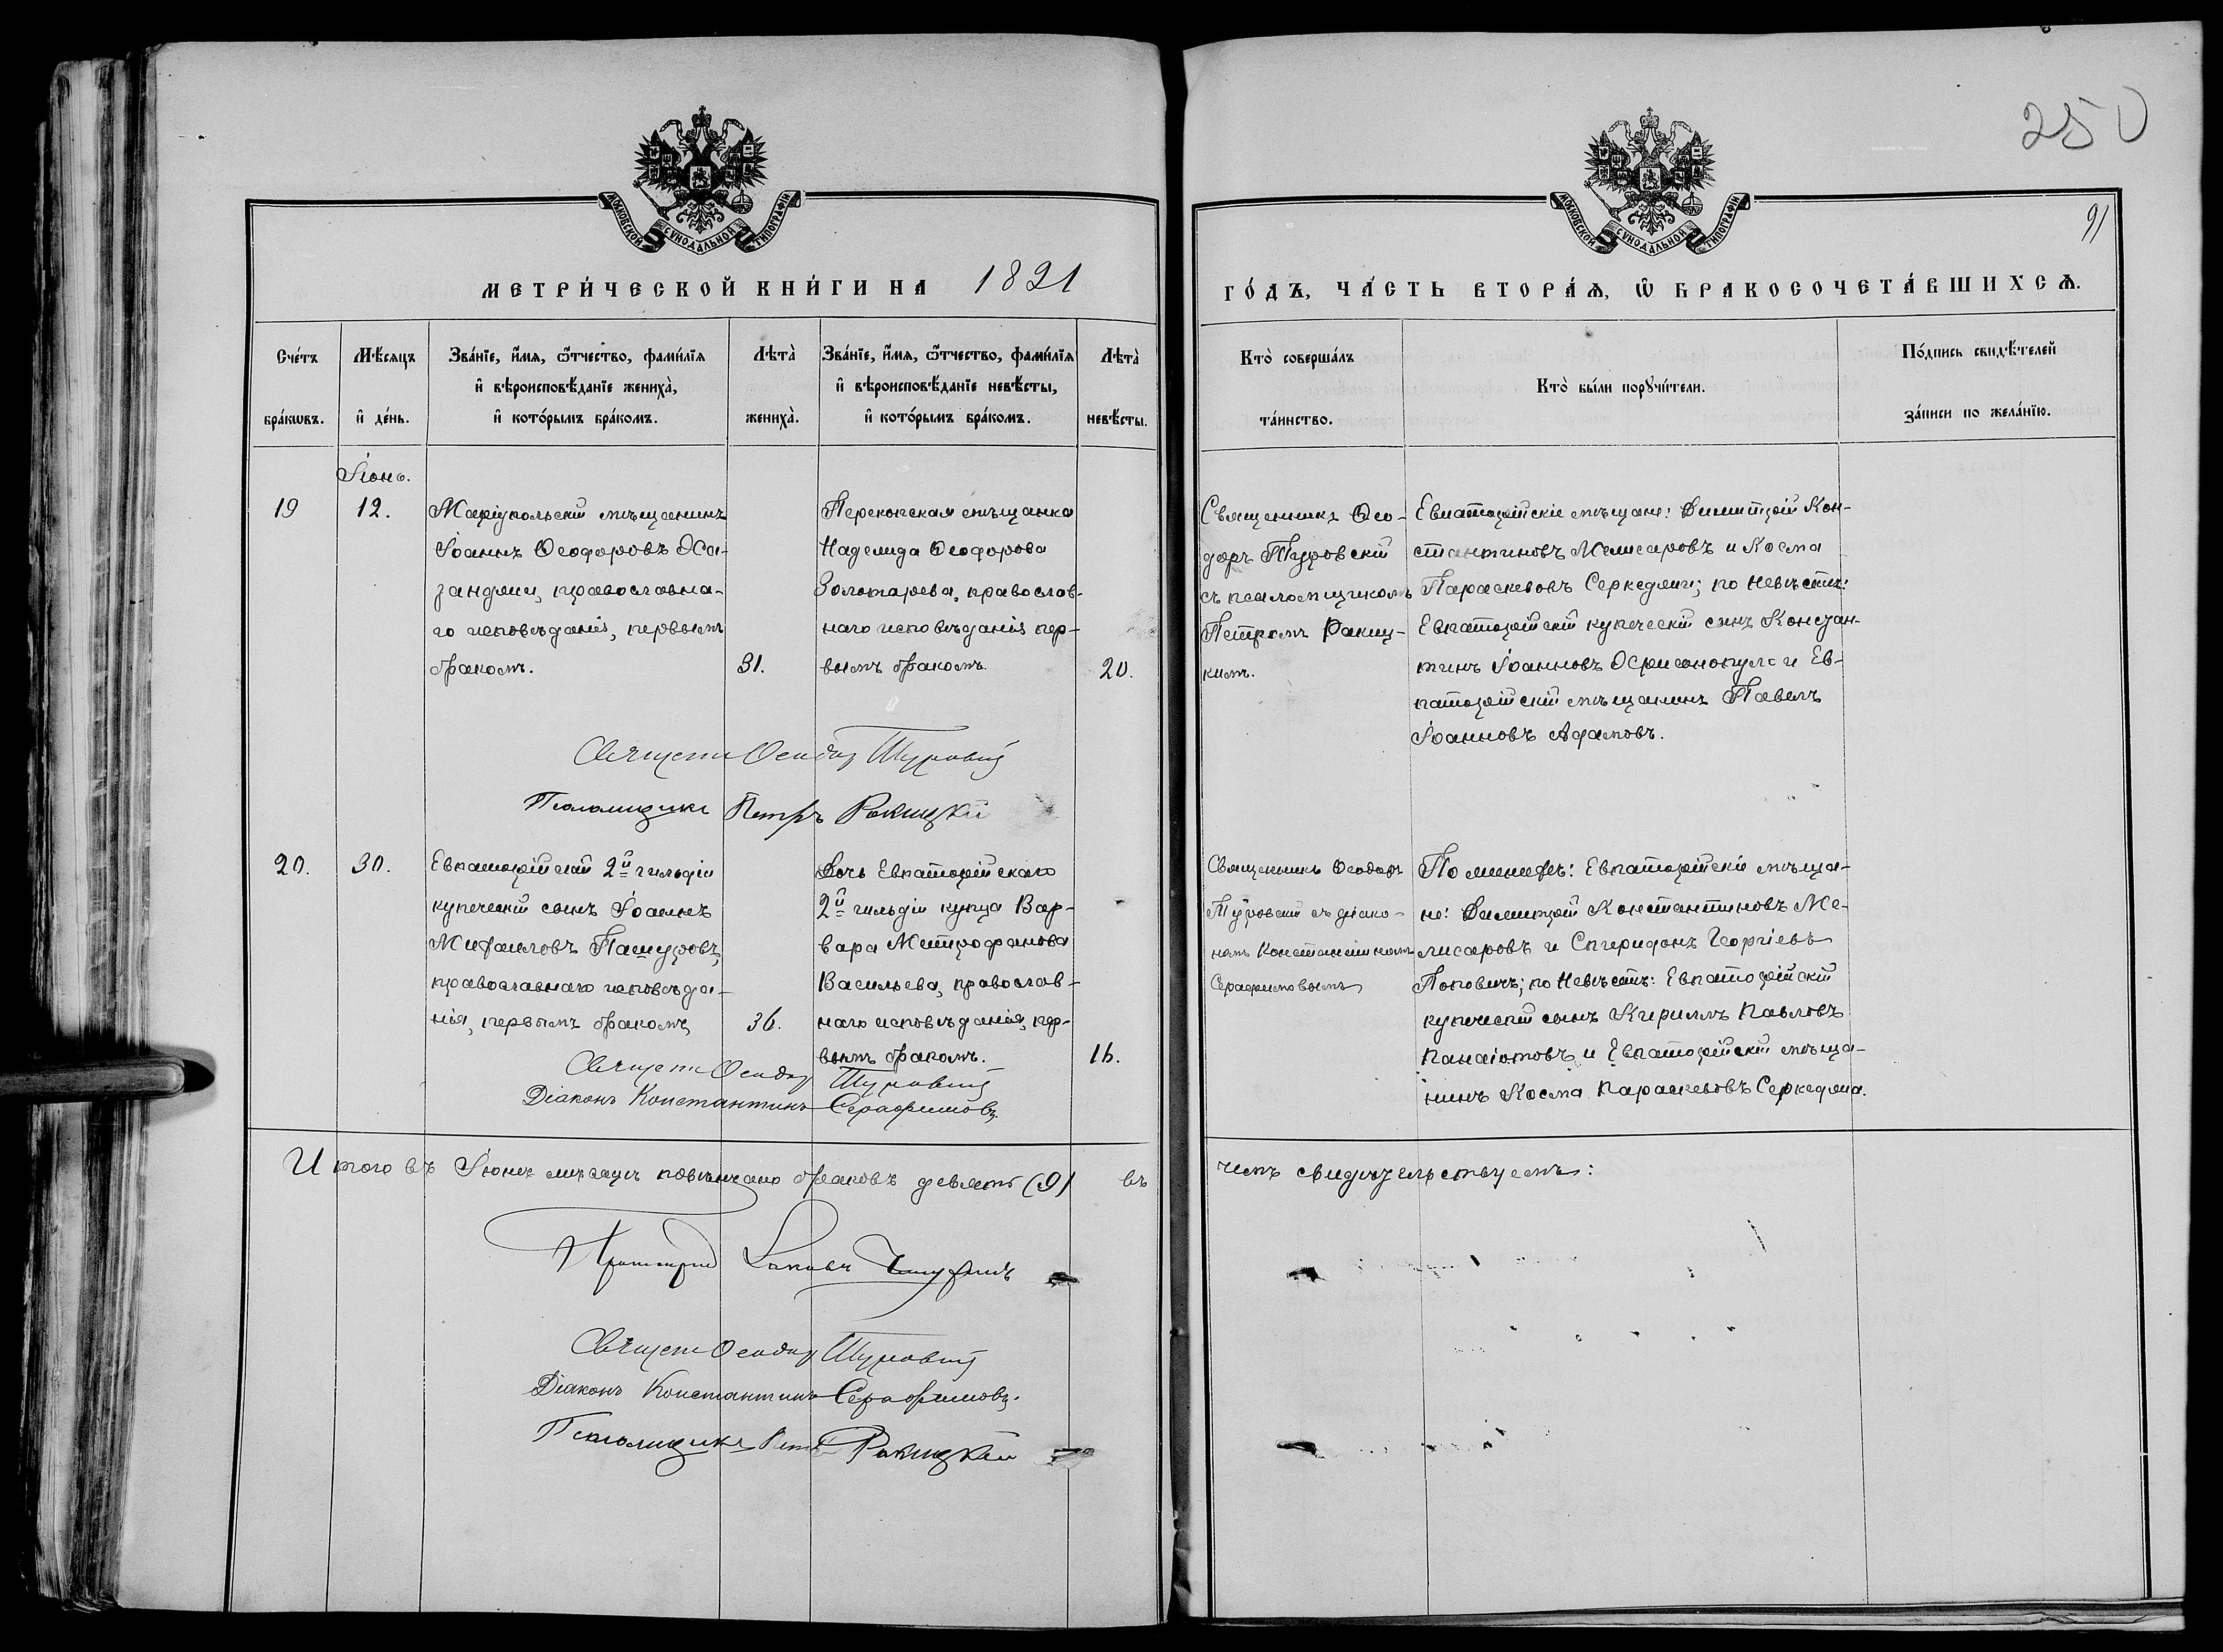 250
91
МОСКОВСКОЙ СѴНОДАЛЬНОЙ ТИПОГРАФІИ
МОСКОВСКОЙ СѴНОДАЛЬНОЙ ТИПОГРАФІИ
МЕТРИ́ЧЕСКОЙ КНИ́ГИ НА 1891
ГО́ДЪ, ЧА́СТЬ ВТОРА́Ѧ, Ѡ БРАКОСОЧЕТА́ВШИХСѦ.
Сче́тъ бра́кѡвъ.
Мѣ́сѧцъ и҆ де́нь.
Зва́нїе, и҆́мѧ, ѻ҆́тчество, фами́лїѧ
и҆ вѣроисповѣ́данїе жениха̀,
и҆ кото́рымъ бра́комъ.
Лѣта̀ жениха̀.
Зва́нїе, и҆́мѧ, ѻ҆́тчество, фами́лїѧ
и҆ вѣроисповѣ́данїе невѣ́сты,
и҆ кото́рымъ бра́комъ.
Лѣта̀ невѣ́сты.
Кто̀ соверша́лъ
та́инство.
Кто̀ бы́ли порꙋчи́тели.
По́дпись свидѣ́телей
за́писи по жела́нїю.
Іюнь.
19
12.
Маріупольскій мѣщанинъ
Іоаннъ Ѳеодоровъ
православна-
го исповѣданія, первымъ
бракомъ.
31.
Перекопская мѣщанка
Надежда Ѳеодорова
Золотарева, православ-
наго исповѣданія пер-
вымъ бракомъ.
20.
Священникъ Ѳео-
доръ Туровскій
съ псаломщикомъ
Петромъ Ракиц-
кимъ.
Евпаторійскіе мѣщане: Димитрій Кон-
стантиновъ Мелисаровъ и Косма
Параскевовъ Серкеджи; по невѣстѣ:
Евпаторійскій купеческій сынъ Констан-
тинъ Іоанновъ и Ев-
паторійскій мѣщанинъ Павелъ
Іоанновъ Адамовъ.
Священ. Ѳеодор Туровскій
Псаломщикъ Петръ Ракицкій
20.
30.
Евпаторійскій 2й гильдіи
купеческій сынъ Іоаннъ
Михаиловъ Пашуровъ,
православнаго исповѣда-
нія, первымъ бракомъ,
36.
Дочь Евпаторійскаго
2й гильдіи купца Вар-
вара Митрофанова
Васильева, православ-
наго исповѣданія, пер-
вымъ бракомъ.
16.
Священникъ Ѳеодоръ
Туровскій съ діако-
номъ Константиномъ
Серафимовымъ
По женихѣ: Евпаторійскіе мѣща-
не: Димитрій Константиновъ Ме-
лисаровъ и Спиридонъ Георгіевъ
Поповичъ; по невѣстѣ: Евпаторійскій
купеческій сынъ Кириллъ Павловъ
Панаіотовъ и Евпаторійскій мѣща-
нинъ Косма Параскевовъ Серкеджи.
Священ. Ѳеодор Туровскій
Діаконъ Константинъ Серафимовъ.
Итого въ Іюнѣ мѣсяцѣ повѣнчано браковъ девять (9) въ
чемъ свидѣтельствуемъ:
Протоіерей Іаковъ
Священ. Ѳеодор Туровскій
Діаконъ Константинъ Серафимовъ.
Псаломщикъ Петръ Ракицкій